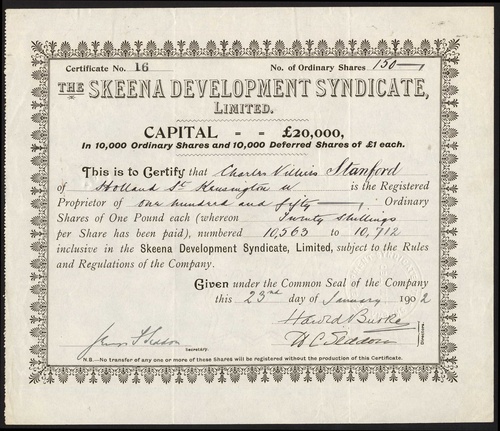 Certificate No. 16 No. of Ordinary Shares 150
THE SKEENA DEVELOPMENT SYNDICATE,
LIMITED.
CAPITAL - - £20,000,
In 10,000 Ordinary Shares and 10,000 Deferred Shares of £1 each.
This is to Certify that Charles Villiers Stanford
of Holland St Kensington W is the Registered
Proprietor of one hundred and fifty Ordinary
Shares of One Pound each (whereon Twenty shillings
per Share has been paid), numbered 10,563 to 10,712
inclusive in the Skeena Development Syndicate, Limited, subject to the Rules
and Regulations of the Company.
Given under the Common Seal of the Company
this 23rd day of January 1902
Harold Burke
H C Seddon
Directors.
Secretary.
N.B.—No transfer of any one or more of these Shares will be registered without the production of this Certificate.